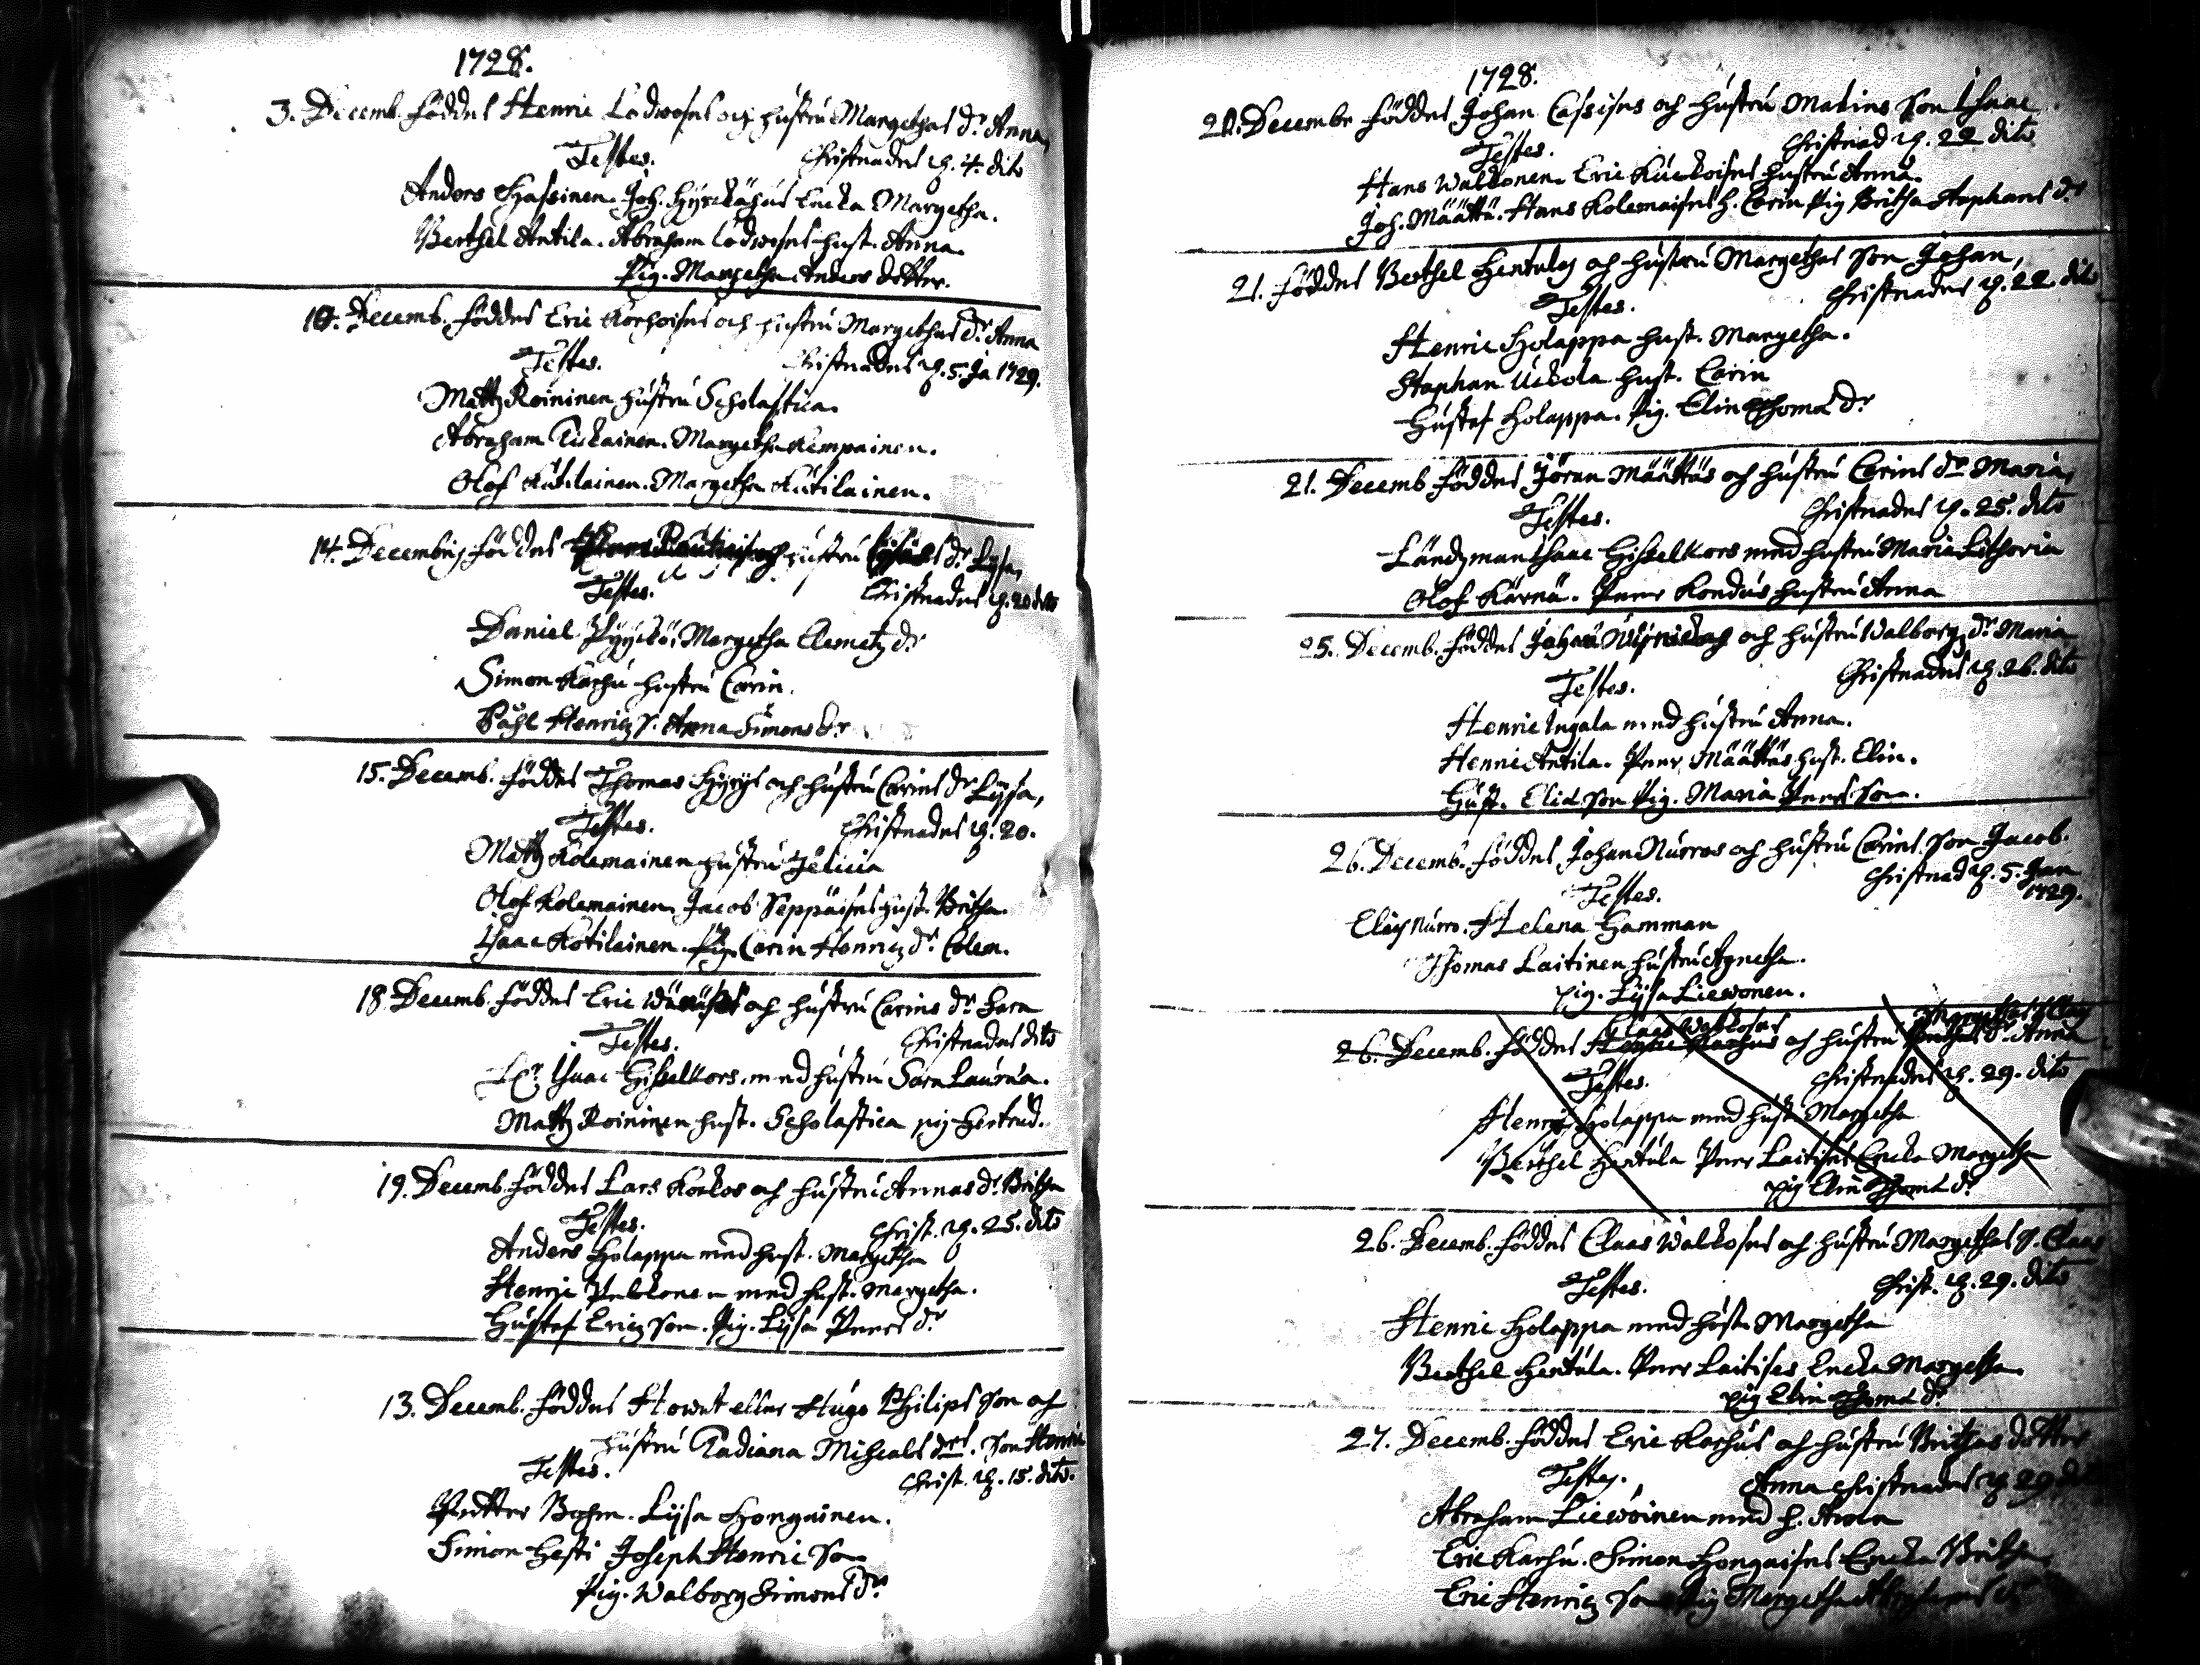 1728.
3. Decemb. föddes Henric Lodwoses och hustru Margethas dr Anna,
Testes. Christnades d. 4. dito
Anders Hassinen. Joh. Hyrckähus Encka Margetha.
Berthel Antila. Abraham Lodwises hust. Anna.
Pig. Margetha Anders dotter.
10. Decemb. föddes Eric Korhoises och hustru Margethas dr Anna
Testes. Christnades d. 5. Ja 1729.
Mattz Roininen hustru Scholastica.
Abraham Margetha Kempainen.
Olof Kutilainen. Margetha Kutilainen.
14. Decembris föddes hustru dr Lysa,
Testes. Christnades d. 20 dito
Daniel Pyyckö, Margetha Clemetz dr
Simon Karhu hustru Carin.
Påhl Henricz S. Anna Simons dr
15. Decemb. föddes Thomas Hyrys och hustru Carins dr Lysa,
Testes. Christnades d. 20.
Mattz Kolemainen hustru Felicia
Olof Kolemainen Jacob Seppäises hust. Britha.
Isaac Kotilainen. Pig. Carin Henricz dr Colem.
18 Decemb. föddes Eric och hustru Carins dr Sara
Testes. Christnades dito
Isaac Gisselkors. med hustru Sara Lauræa.
Mattz Roininen hust. Scholastica pig Gertrud.
19. Decemb. föddes Lars Korkos och hustru Annas dr Britha
Testes. Christ. d. 25. dito
Anders Holappa med hust. Margetha
Henric Pulckone n med hust. Margetha.
Gustaf Ericz son. Pig. Lysa Peers dr
13. Decemb. föddes Howet eller Hugo Philips son och
hustru Tadiana Micheals drs. son Henric
Testes. Christ. d. 15. dito.
Petter Bohm. Lysa Hongainen.
Simon Hesti Joseph Henric son
Pig. Walborg Simons dr
1728.
20. Decembr föddes Johan Cassises och hustru Malins son Isaac.
Testes. Christnad d. 22 dito
Hans Walkonen. Eric Kuckoises hustru Anna.
Joh. Määttä. Hans Kolemaises h. Carin Pig Britha Staphans dr
21. föddes Berthel Hertulas och hustru Margethas son Johan,
Testes. Christnades d. 22. dito
Henric Holappa hust. Margetha.
Staphan Uckola hust. Carin
Gustaf Holappa. Pig. Elin Thomæ dr
21. Decemb föddes Jöran Määttäs och hustru Carins dr Maria,
Testes. Christnades d. 25. dito
Ländzman Isaac Gisselkors med hustru Maria Lithovia
Olof Kärnä. Peer Kondus hustru Anna
25. Decemb. föddes Johan och hustru Walborgz dr Maria
Testes. Christnades d. 26. dito
Henric Ingala med hustru Anna.
Henric Antila. Peer Määttäs hust. Elin.
Gust. Eliæ son Pig. Maria Peers son.
26. Decemb. föddes Johan Nurros och hustru Carins son Jacob.
Testes. Christnad d. 5. Jan
1729.
Elias Nurro. Helena Hamman
Thomas Laitinen hustru Agnetha.
pig. Lysa Liewonen.
Claes Walkoses Margethas
26. Decemb. föddes Karhus och hustru Brithas dr Anna
Testes. Christnades d. 29. dito
Henric Holappa med hust. Margetha
Berthel Hertula Peer Laitises Encka Margetha
pig Elin Thomæ dr
26. Decemb. föddes Claas Walkoses och hustru Margethas S. Claas
Testes. Christ. d. 29. dito
Henric Holappa med hust. Margetha
Berthel Hertula. Peer Laitises Encka Margetha.
pig Elin Thomæ dr
27. Decemb. föddes Eric Karhus och hustru Brithas dotter
Testes. Anna Christnades d. 29
Abraham Liewoinen med h.
Eric Karhu. Simon Hongaises Encka Britha.
Eric Henricz son Pig Margetha